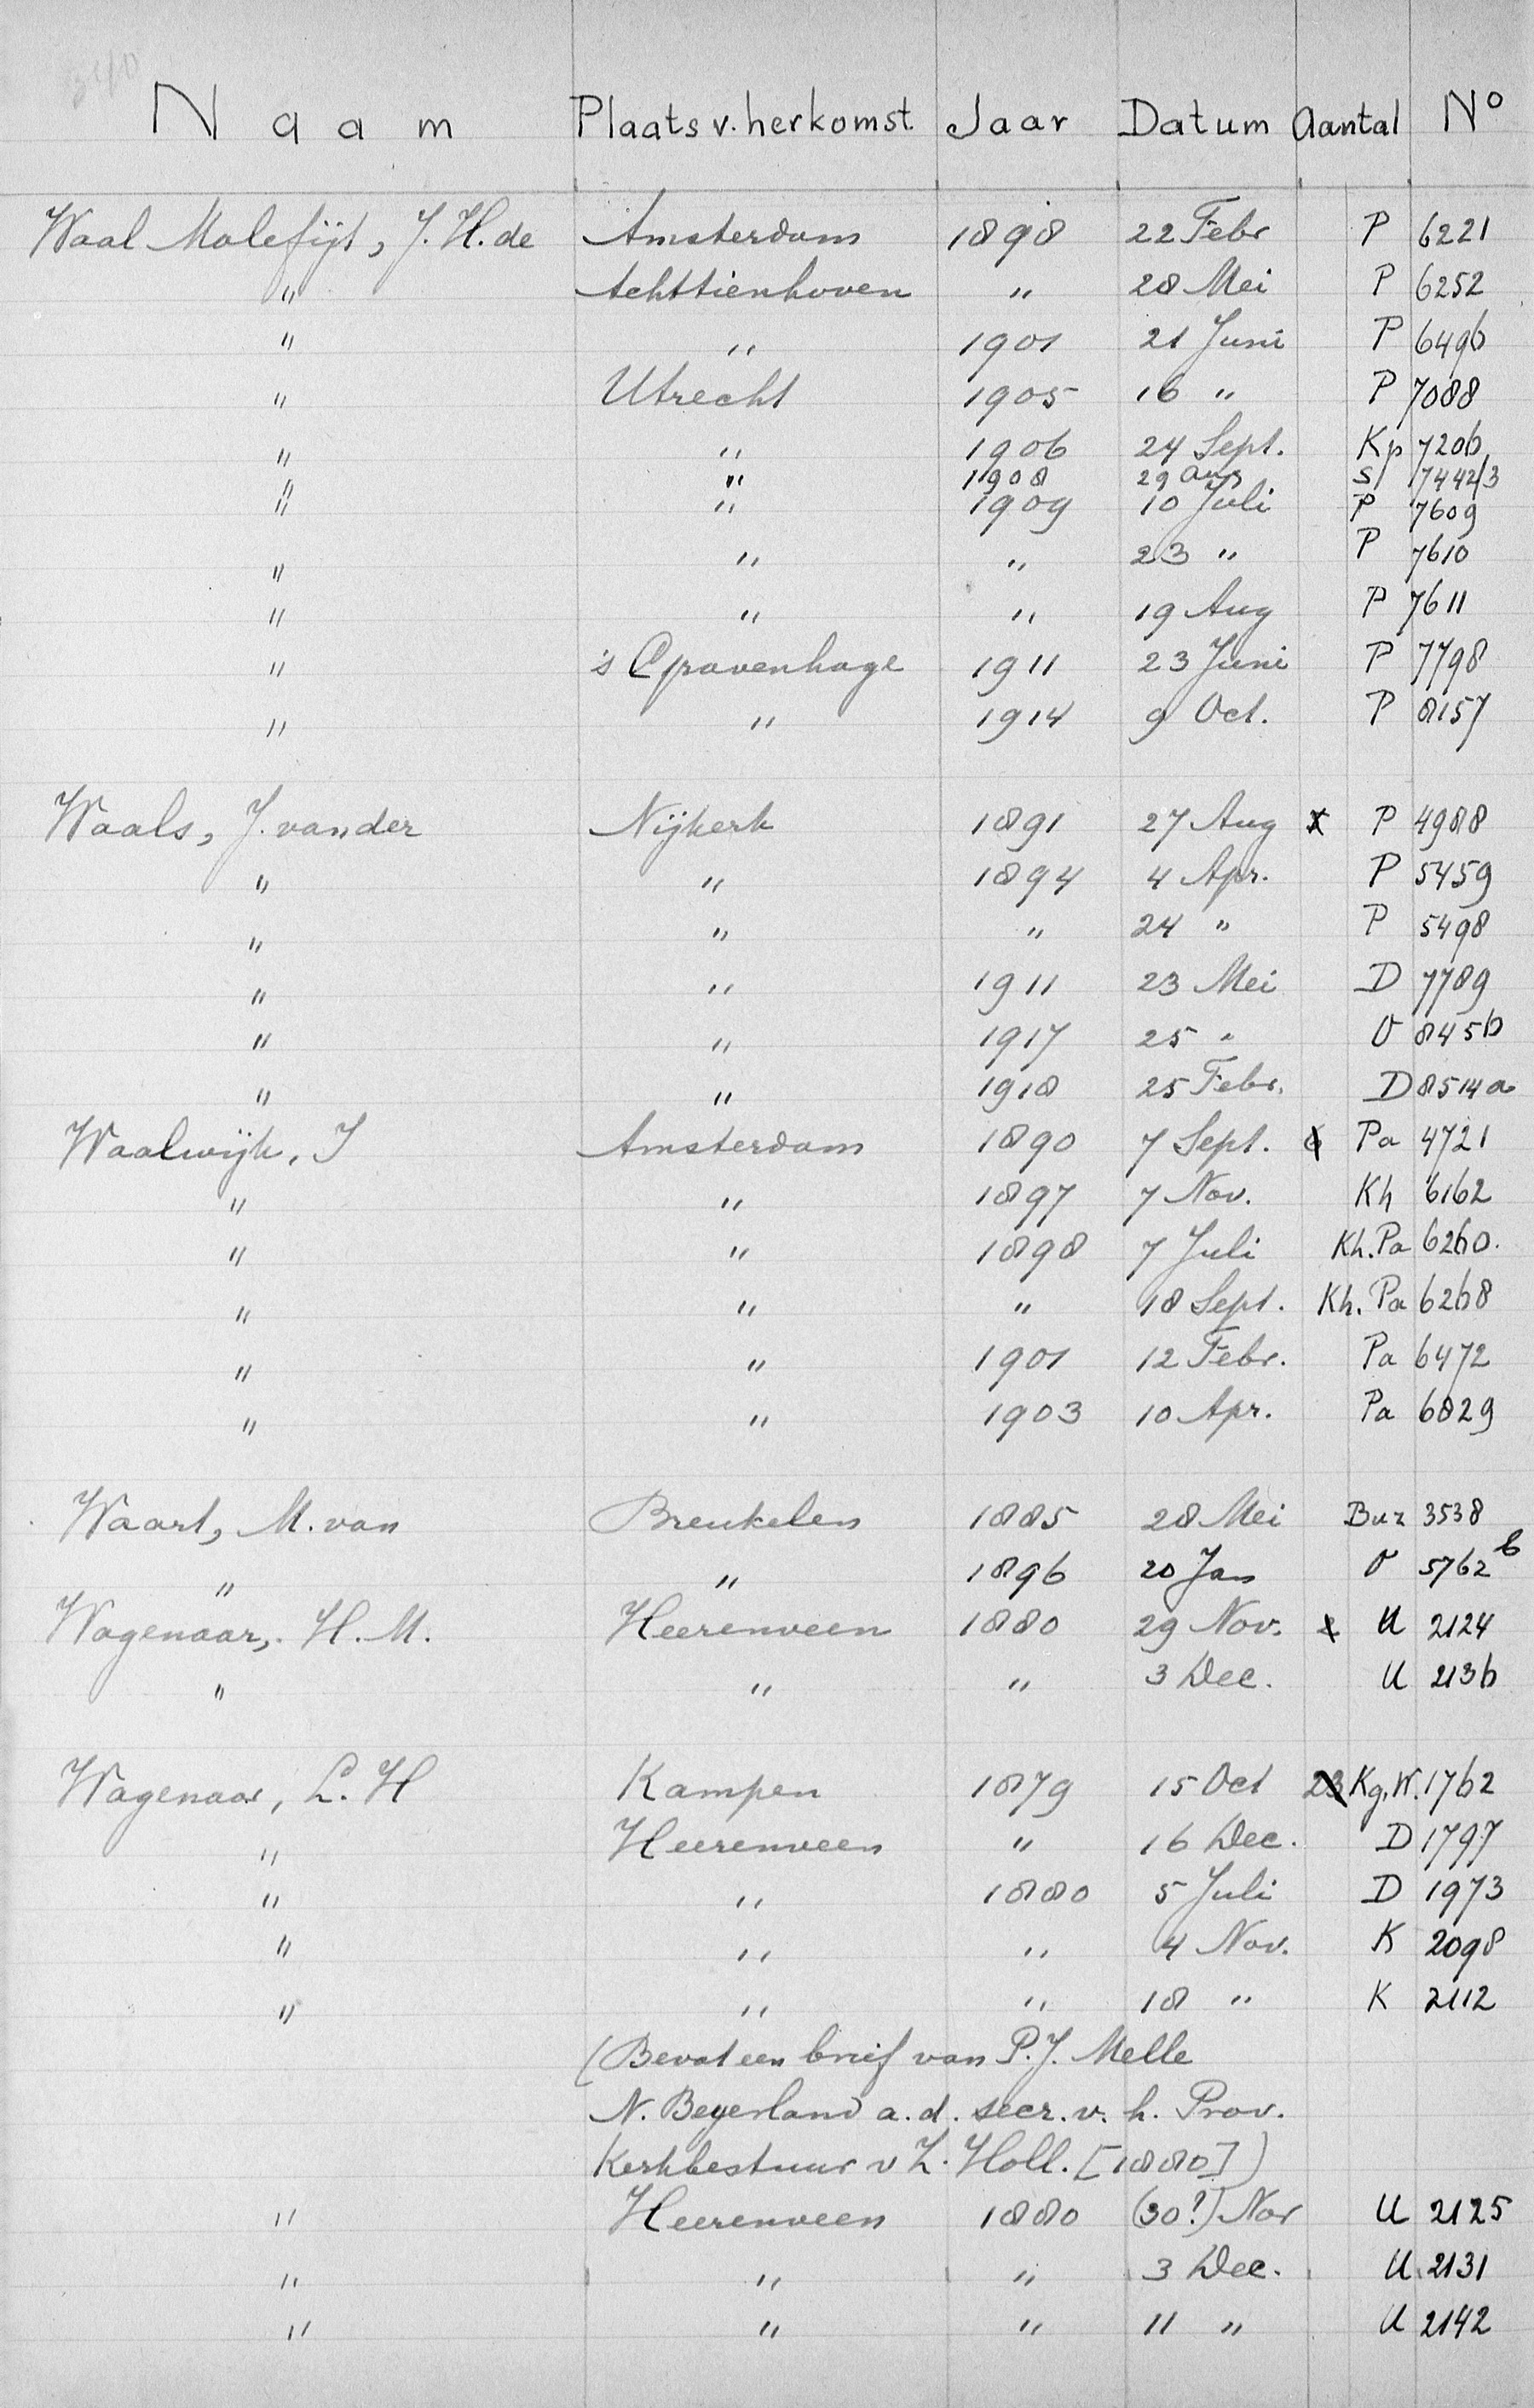 Naam Plaats v. herkomst. Jaar Datum Aantal No
Waal Malefijt, J. H. de Amsterdam 1898 22 Febr P 6221
" Achttienhoven " 28 Mei P 6252
" " 1901 21 Juni P 6496
" Utrecht 1905 16 " P 7088
" " 1906 24 Sept. Kp 7206
" " 1908 29 aug S 7442/3
" " 1909 10 Juli P 7609
" " " 23 " P 7610
" " " 19 Aug P 7611
" 's Gravenhage 1911 23 Juni P 7798
" " 1914 9 Oct. P 8157
Waals, J. van der Nijkerk 1891 27 Aug P 4988
" " 1894 4 Apr. P 5459
" " " 24 " P 5498
" " 1911 23 Mei D 7789
" " 1917 25 " O 8456
" " 1918 25 Febr. D 8514a
Waalwijk, J Amsterdam 1890 7 Sept. 6 Pa 4721
" " 1897 7 Nov. Kh 6162
" " 1898 7 Juli Kh. Pa 6260.
" " " 18 Sept. Kh. Pa 6268
" " 1901 12 Febr. Pa 6472
" " 1903 10 Apr. Pa 6829
Waart, M. van Breukelen 1885 28 Mei Buz 3538
" " 1896 20 Jan O 5762b
Wagenaar, H. M. Heerenveen 1880 29 Nov. U 2124
" " " 3 Dec. U 2136
Wagenaar, L. H Kampen 1879 15 Oct 23 Kg. W. 1762
" Heerenveen " 16 Dec. D 1797
" " 1880 5 Juli D 1973
" " " 4 Nov. K 2098
" " " 18 " K 2112
(Bevat een brief van P. J. Melle
N. Beyerland a. d. secr. v. h. Prov.
Kerkbestuur v Z. Holl. [1880])
" Heerenveen 1880 (30?) Nov U 2125
" " " 3 Dec. U 2131
" " " 11 " U 2142